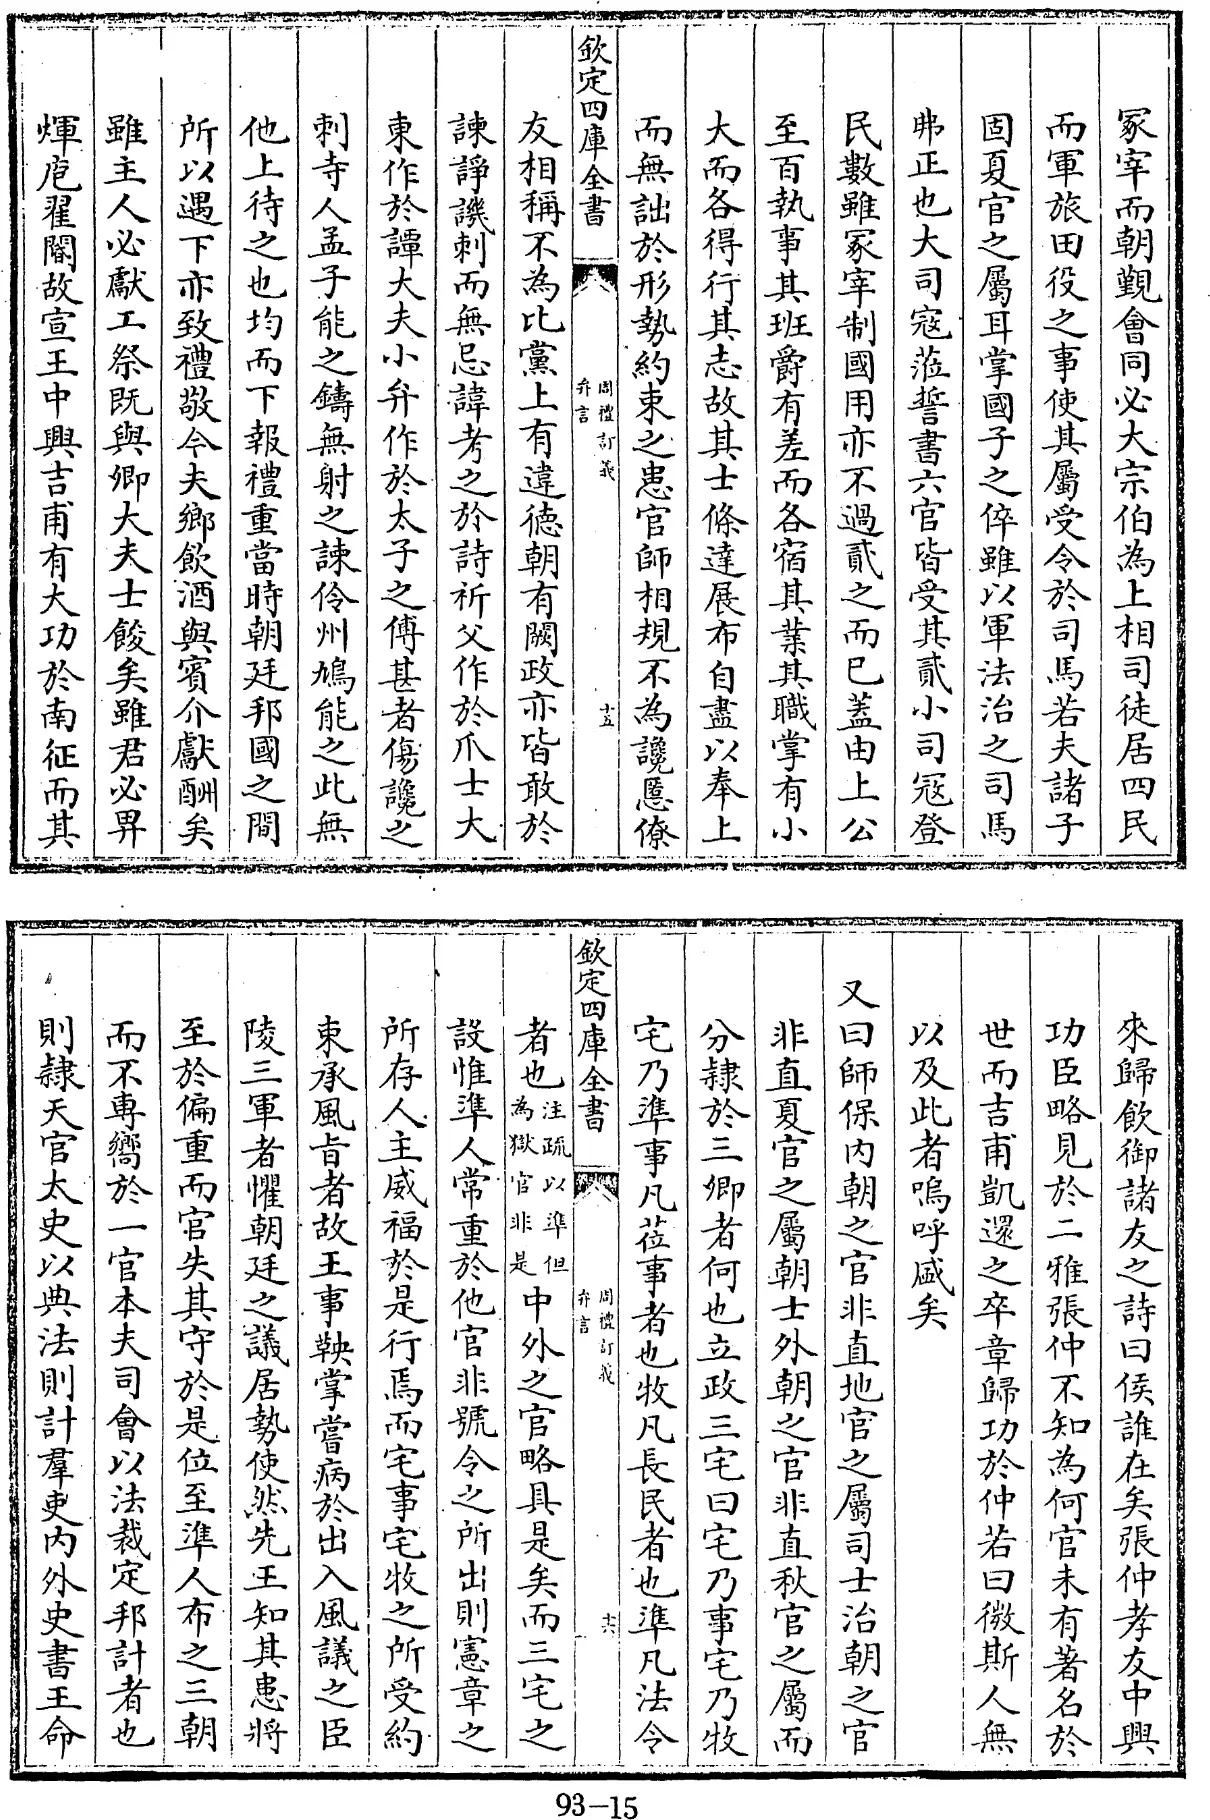 冢宰而朝覲會同必大宗伯為上相司徒居四民
而軍旅田役之事使其屬受令於司馬若夫諸子
固夏官之屬耳掌國子之倅雖以軍法治之司馬
弗正也大司寇蒞誓書六官皆受其貳小司寇登
民數雖冢宰制國用亦不過貳之而已蓋由上公
至百執事其班爵有差而各宿其業其職掌有小
大而各得行其志故其士條達展布自盡以奉上
而無詘於形勢約束之患官師相規不為讒慝僚
欽定四庫全書
周禮訂義
弁言
十五
友相稱不為比黨上有違德朝有闕政亦皆敢於
諫諍譏刺而無忌諱考之於詩祈父作於爪士大
東作於譚大夫小弁作於太子之傅甚者傷讒之
刺寺人孟子能之鑄無射之諫伶州鳩能之此無
他上待之也均而下報禮重當時朝廷邦國之間
所以遇下亦致禮敬今夫鄉飲酒與賓介獻酬矣
雖主人必獻工祭既與卿大夫士餕矣雖君必畀
煇庖翟閽故宣王中興吉甫有大功於南征而其
來歸飲御諸友之詩曰侯誰在矣張仲孝友中興
功臣略見於二雅張仲不知為何官未有著名於
世而吉甫凱還之卒章歸功於仲若曰微斯人無
以及此者嗚呼盛矣
又曰師保內朝之官非直地官之屬司士治朝之官
非直夏官之屬朝士外朝之官非直秋官之屬而
分隷於三卿者何也立政三宅曰宅乃事宅乃牧
宅乃準事凡蒞事者也牧凡長民者也準凡法令
欽定四庫全書
周禮訂義
弁言
十六
者也注疏以準但為獄官非是中外之官略具是矣而三宅之
設惟準人常重於他官非號令之所出則憲章之
所存人主威福於是行焉而宅事宅牧之所受約
束承風旨者故王事鞅掌嘗病於出入風議之臣
陵三軍者懼朝廷之議居勢使然先王知其患將
至於偏重而官失其守於是位至準人布之三朝
而不專嚮於一官本夫司會以法裁定邦計者也
則隷天官太史以典法則計羣吏內外史書王命
93-15